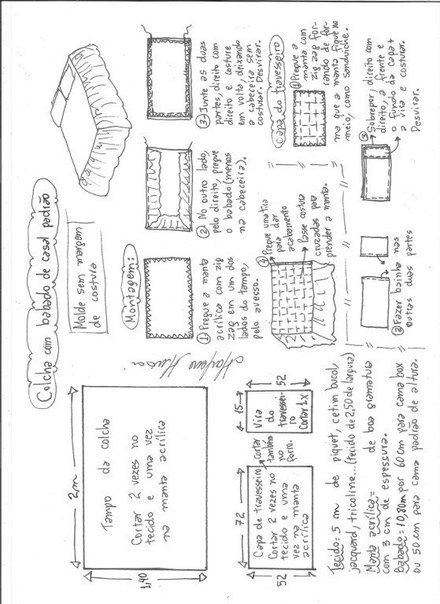 Colcha com babado de casal padrão
Molde sem margem
de costura
2m
Tampo da colcha
Cortar 2 vezes no
tecido e uma vez
na manta acrílica
1,90
Montagem:
① Pregue a manta
acrílica com zig
zag em um dos
lados do tampo,
pelo avesso.
② No outro lado,
pelo direito, pregue
o babado (menos
na cabeceira),
③ Junte as duas
partes, direito com
direito e costure
em volta, deixando
a cabeceira sem
costurar. Desvirar.
④ Pregue uma tira
para dar
acabamento
Passe costura
cruzadas para
prender a manta.
72
Capa de travesseiro
Cortar 2 vezes no
tecido e uma
vez na manta
acrílica
52
Cortar
também
no
forro.
15
Vira
do
travessei-
ro
Cortar 1x
52
Capa do travesseiro
① Pregue a
manta com
zig zag for-
rando de for-
ma que a manta fique no
meio, como sanduíche.
② Fazer bainha nas
outras duas partes
③ Sobrepor, direito com
direito, a frente e
o fundo da capa +
a vira e costurar.
Desvirar.
Tecido: 5 m de piquet, cetim bucol,
jacquard, tricoline... (tecido de 2,50 de largura)
Manta acrílica = de boa gramatura
com 3 cm de espessura.
Babado: 10,80m por 60 cm para cama box
ou 50 cm para cama padrão de altura.